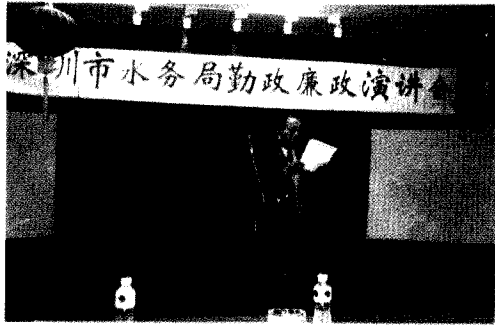 深圳市水务局勤政廉政演讲会